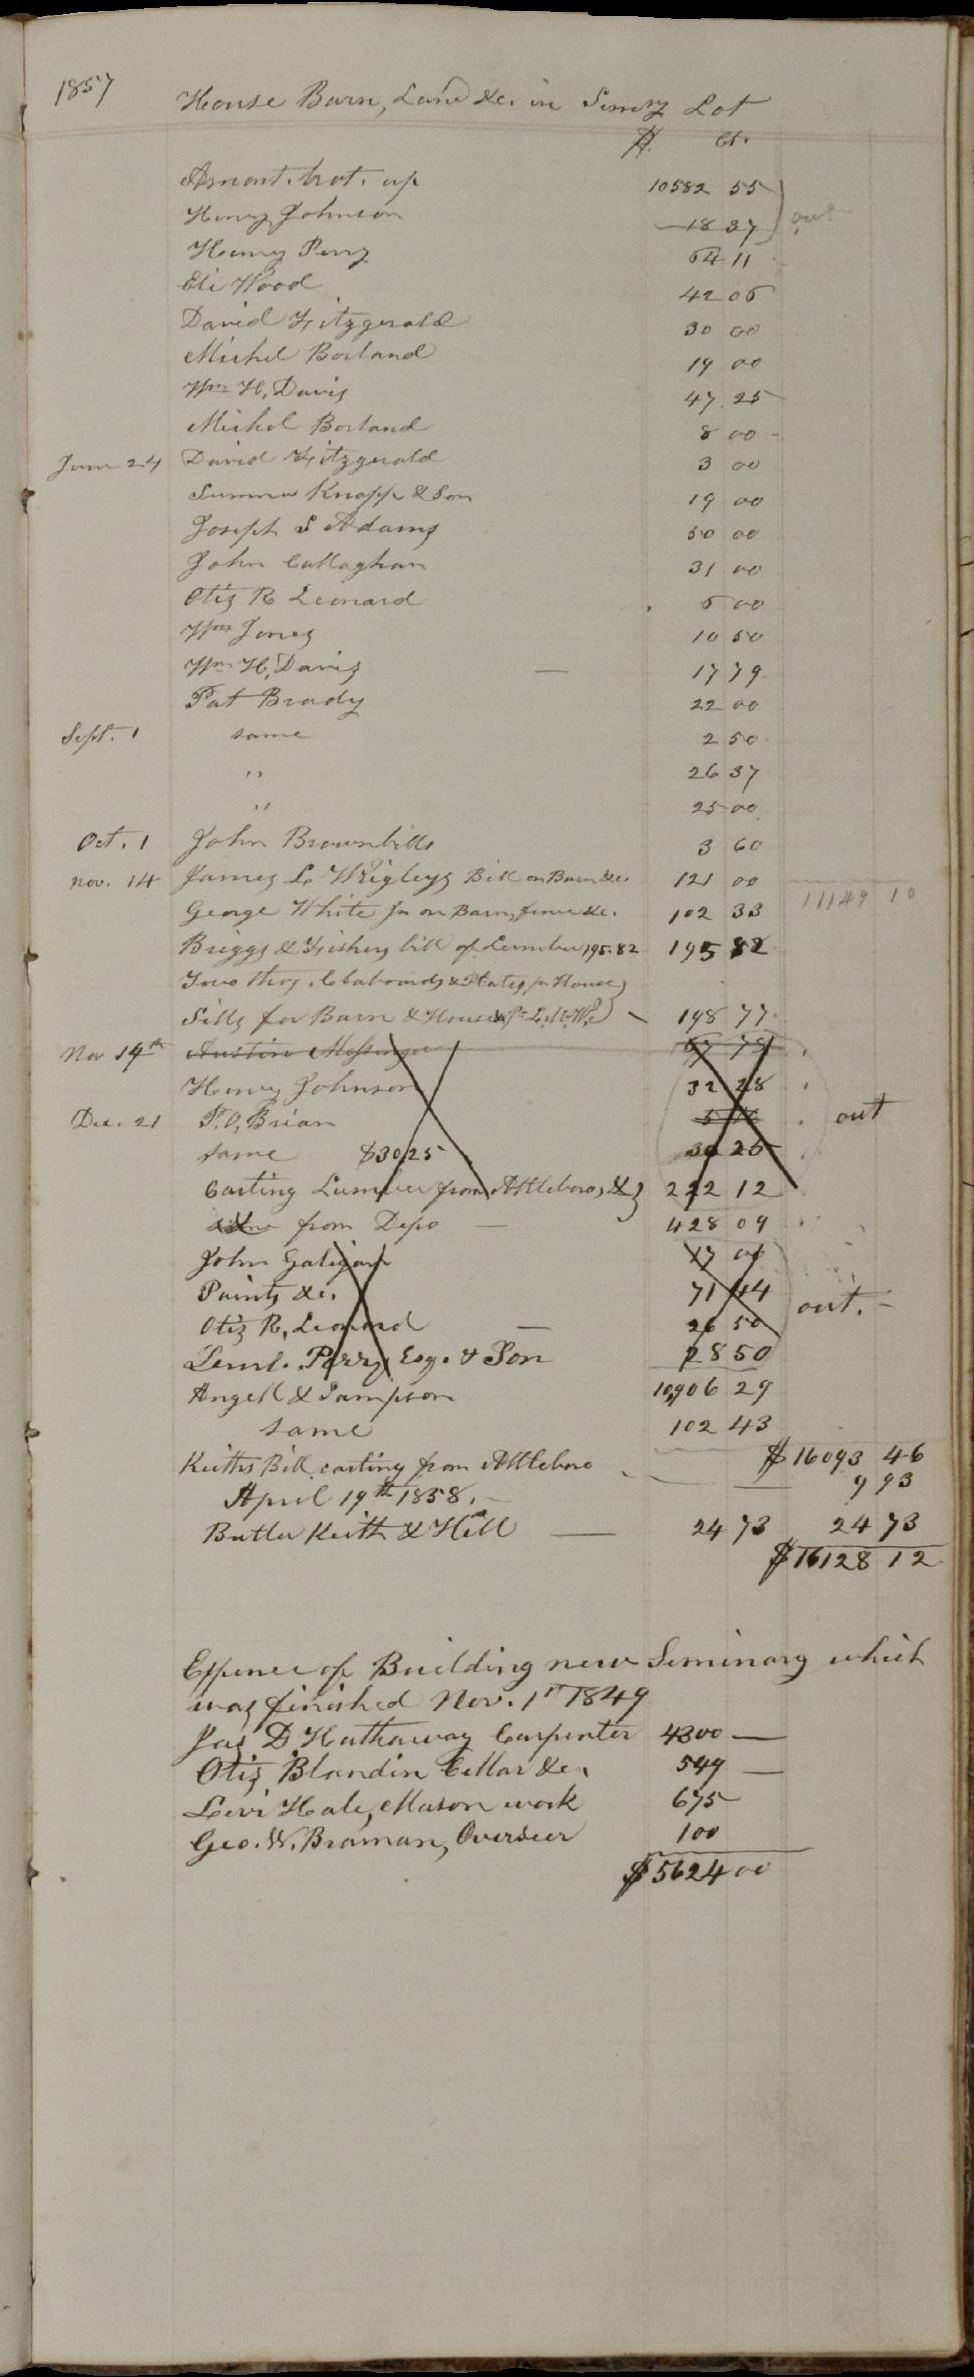 1857 House Barn, Land &c. in Semry Lot
$. ct.
Amont. brot. up 10582 55
Henry Johnson 18 37 out
Henry Perry 64 11
Eli Wood 42 06
David Fitzgerald 30 00
Michel Borland 19 00
Wm H, Davis 47.25
Michel Borland 8 00
June 24 David Fitzgerald 3 00
Sumner Knapp & Son 19 00
Joseph S Adams 50 00
John Callaghan 31 00
Otis R Leonard 6 00
Wm Jones 10 50
Wm H, Davis — 17 79
Pat Brady 22 00
Sept. 1 same 2 50
" 26 37
" 25 00
Oct. 1 John Brownbills 3 60
Nov. 14 James L Wrigleys Bill on Barn &c. 121 00 11149 10
George White Jn on Barn, fence &c. 102 33
Briggs & Fishers bill of Lumber 195.82 195 82
Clabourds & Slates for House
Sills for Barn & House 198 77
Nov 14th Austin Messinger 67 75
Henry Johnson 32 28
Dec. 21 P. O, Brian out
same $30,25 30 25
Carting Lumber from Attleboro, & 222 12
from Depo — 428 09
John Galigan 17 00
Paints &c. 71 44 out. -
Otis R, Leonard — 26 50
Leml. Perry, Esq. & Son 28 50
Angell & Sampson 10,906 29
same 102 43
Keiths Bill carting from Attleboro $16093 46
April 19th 1858. — 9 93
Butler Keith & Hill — 24 73 24 73
$16128 12
Expence of Building new Seminary which
was finished Nov. 1st 1849
Jas D. Hathaway Carpenter 4300 —
Otis Blandin Cellar &c. 549 —
Levi Hale, Mason work 675
Geo. W. Braman, Overseer 100
$5624 00